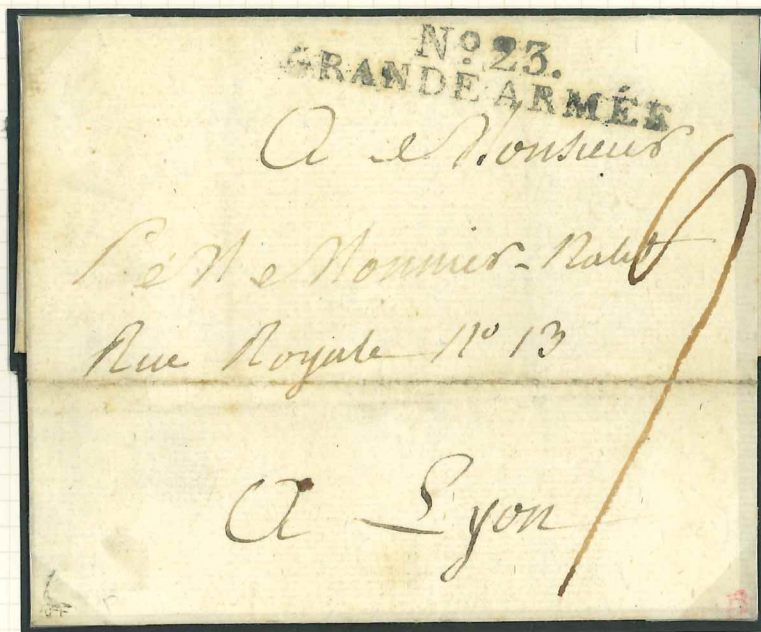 No. 23.
GRANDE ARMÉE
A Monsieur
Monnier -
Rue Royale No 13
A Lyon